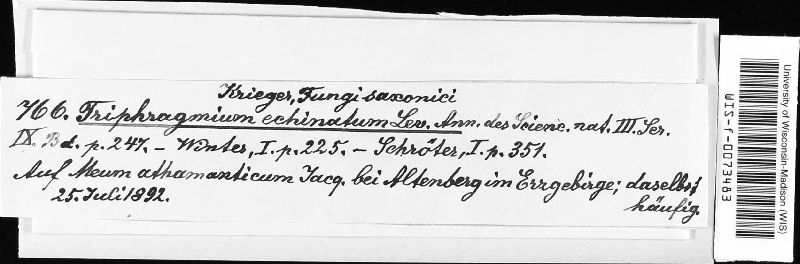 Krieger, Fungi saxonici
766. Triphragmium echinatum Lev. Ann. des Scienc. nat. III. Ser.
IX. Bd. p. 247. – Winter, I. p. 225. – Schröter, I. p. 351.
Auf Meum athamanticum Jacq. bei Altenberg im Erzgebirge; daselbst
häufig.
25. Juli 1892.
University of Wisconsin-Madison (WIS)
WIS-f-0073483